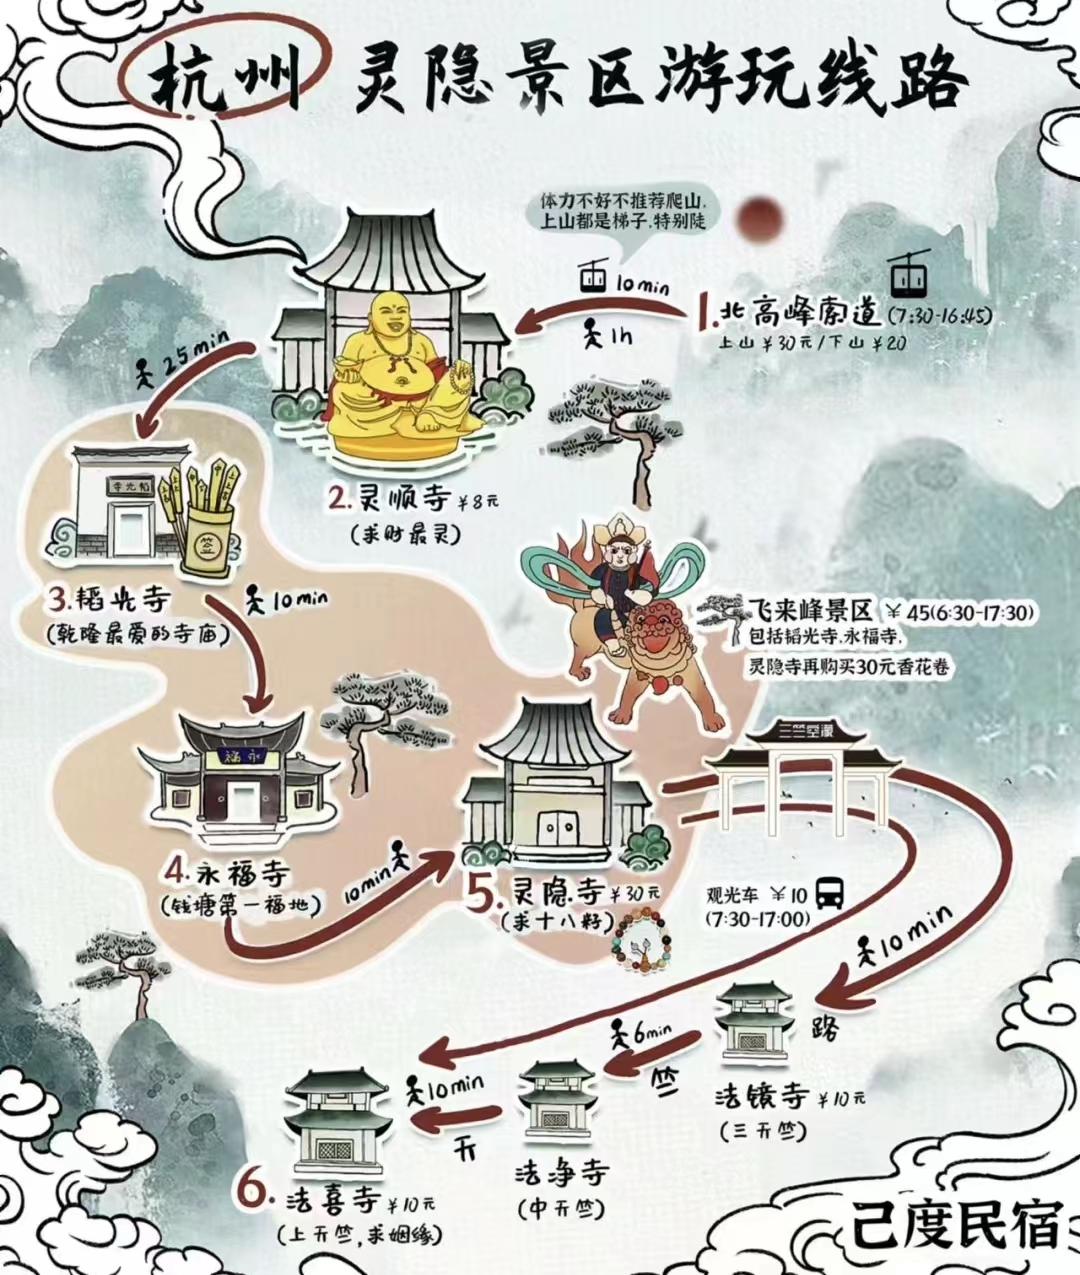 杭州 灵隐景区游玩线路
体力不好不推荐爬山,
上山都是梯子,特别陡
10min
1h
1.北高峰索道(7:30-16:45)
上山¥30元/下山¥20
25min
2.灵顺寺¥8元
(求财最灵)
韬光寺
签
3.韬光寺
(乾隆最爱的寺庙)
10min
飞来峰景区 ¥45(6:30-17:30)
包括韬光寺,永福寺,
灵隐寺再购买30元香花卷
永福
三竺空濛
4.永福寺
(钱塘第一福地)
10min
5.灵隐寺¥30元
(求十八籽)
观光车 ¥10
(7:30-17:00)
10min
路
法镜寺¥10元
(三天竺)
6min
竺
法净寺
(中天竺)
10min
天
6.法喜寺¥10元
(上天竺,求姻缘)
己度民宿